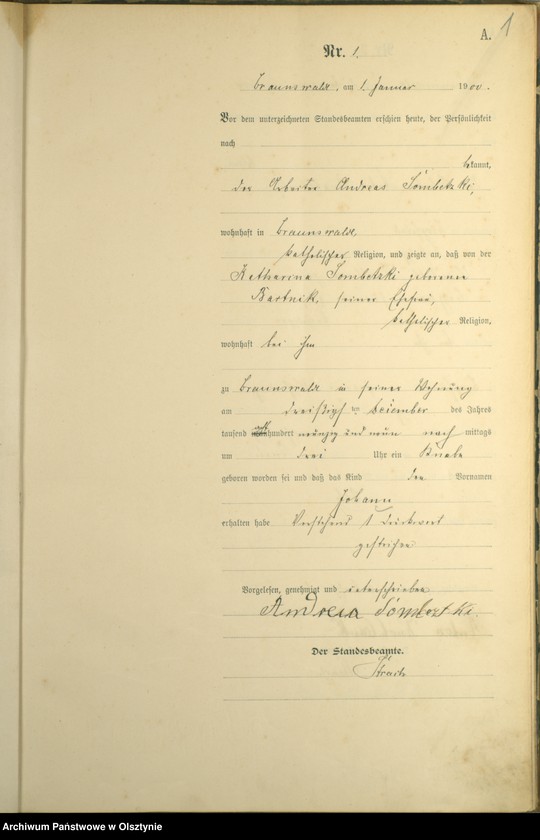 A. 1
Nr. 1.
Braunswald, am 1. Januar 1900.
Vor dem unterzeichneten Standesbeamten erschien heute, der Persönlichkeit
nach
bekannt,
der Arbeiter Andreas Sombetzki,
wohnhaft in Braunswald
katholischer Religion, und zeigte an, daß von der
Katharina Sombetzki geborenen
Bartnik, seiner Ehefrau,
katholischer Religion,
wohnhaft bei ihm
zu Braunswald in seiner Wohnung
am dreißigsten Dezember des Jahres
tausend achthundert neunzig und neun nach mittags
um drei Uhr ein Knabe
geboren worden sei und daß das Kind den Vornamen
Johann
erhalten habe Vorstehend 1 Druckwort
gestrichen
Vorgelesen, genehmigt und unterschrieben
Der Standesbeamte.
Archiwum Państwowe w Olsztynie